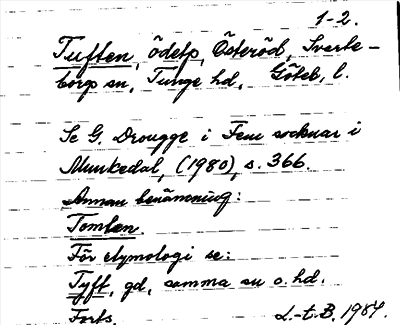 1-2.
Tuften, ödetp, Österöd, Svarte-
borgs sn, Tunge hd, Göteb, l.
Se G. Drougge i Fem socknar i
Munkedal, (1980), s. 366.
Annan benämning:
Tomten.
För etymologi se:
Tyft, gd, samma sn o. hd.
Forts. L-t-B. 1984.